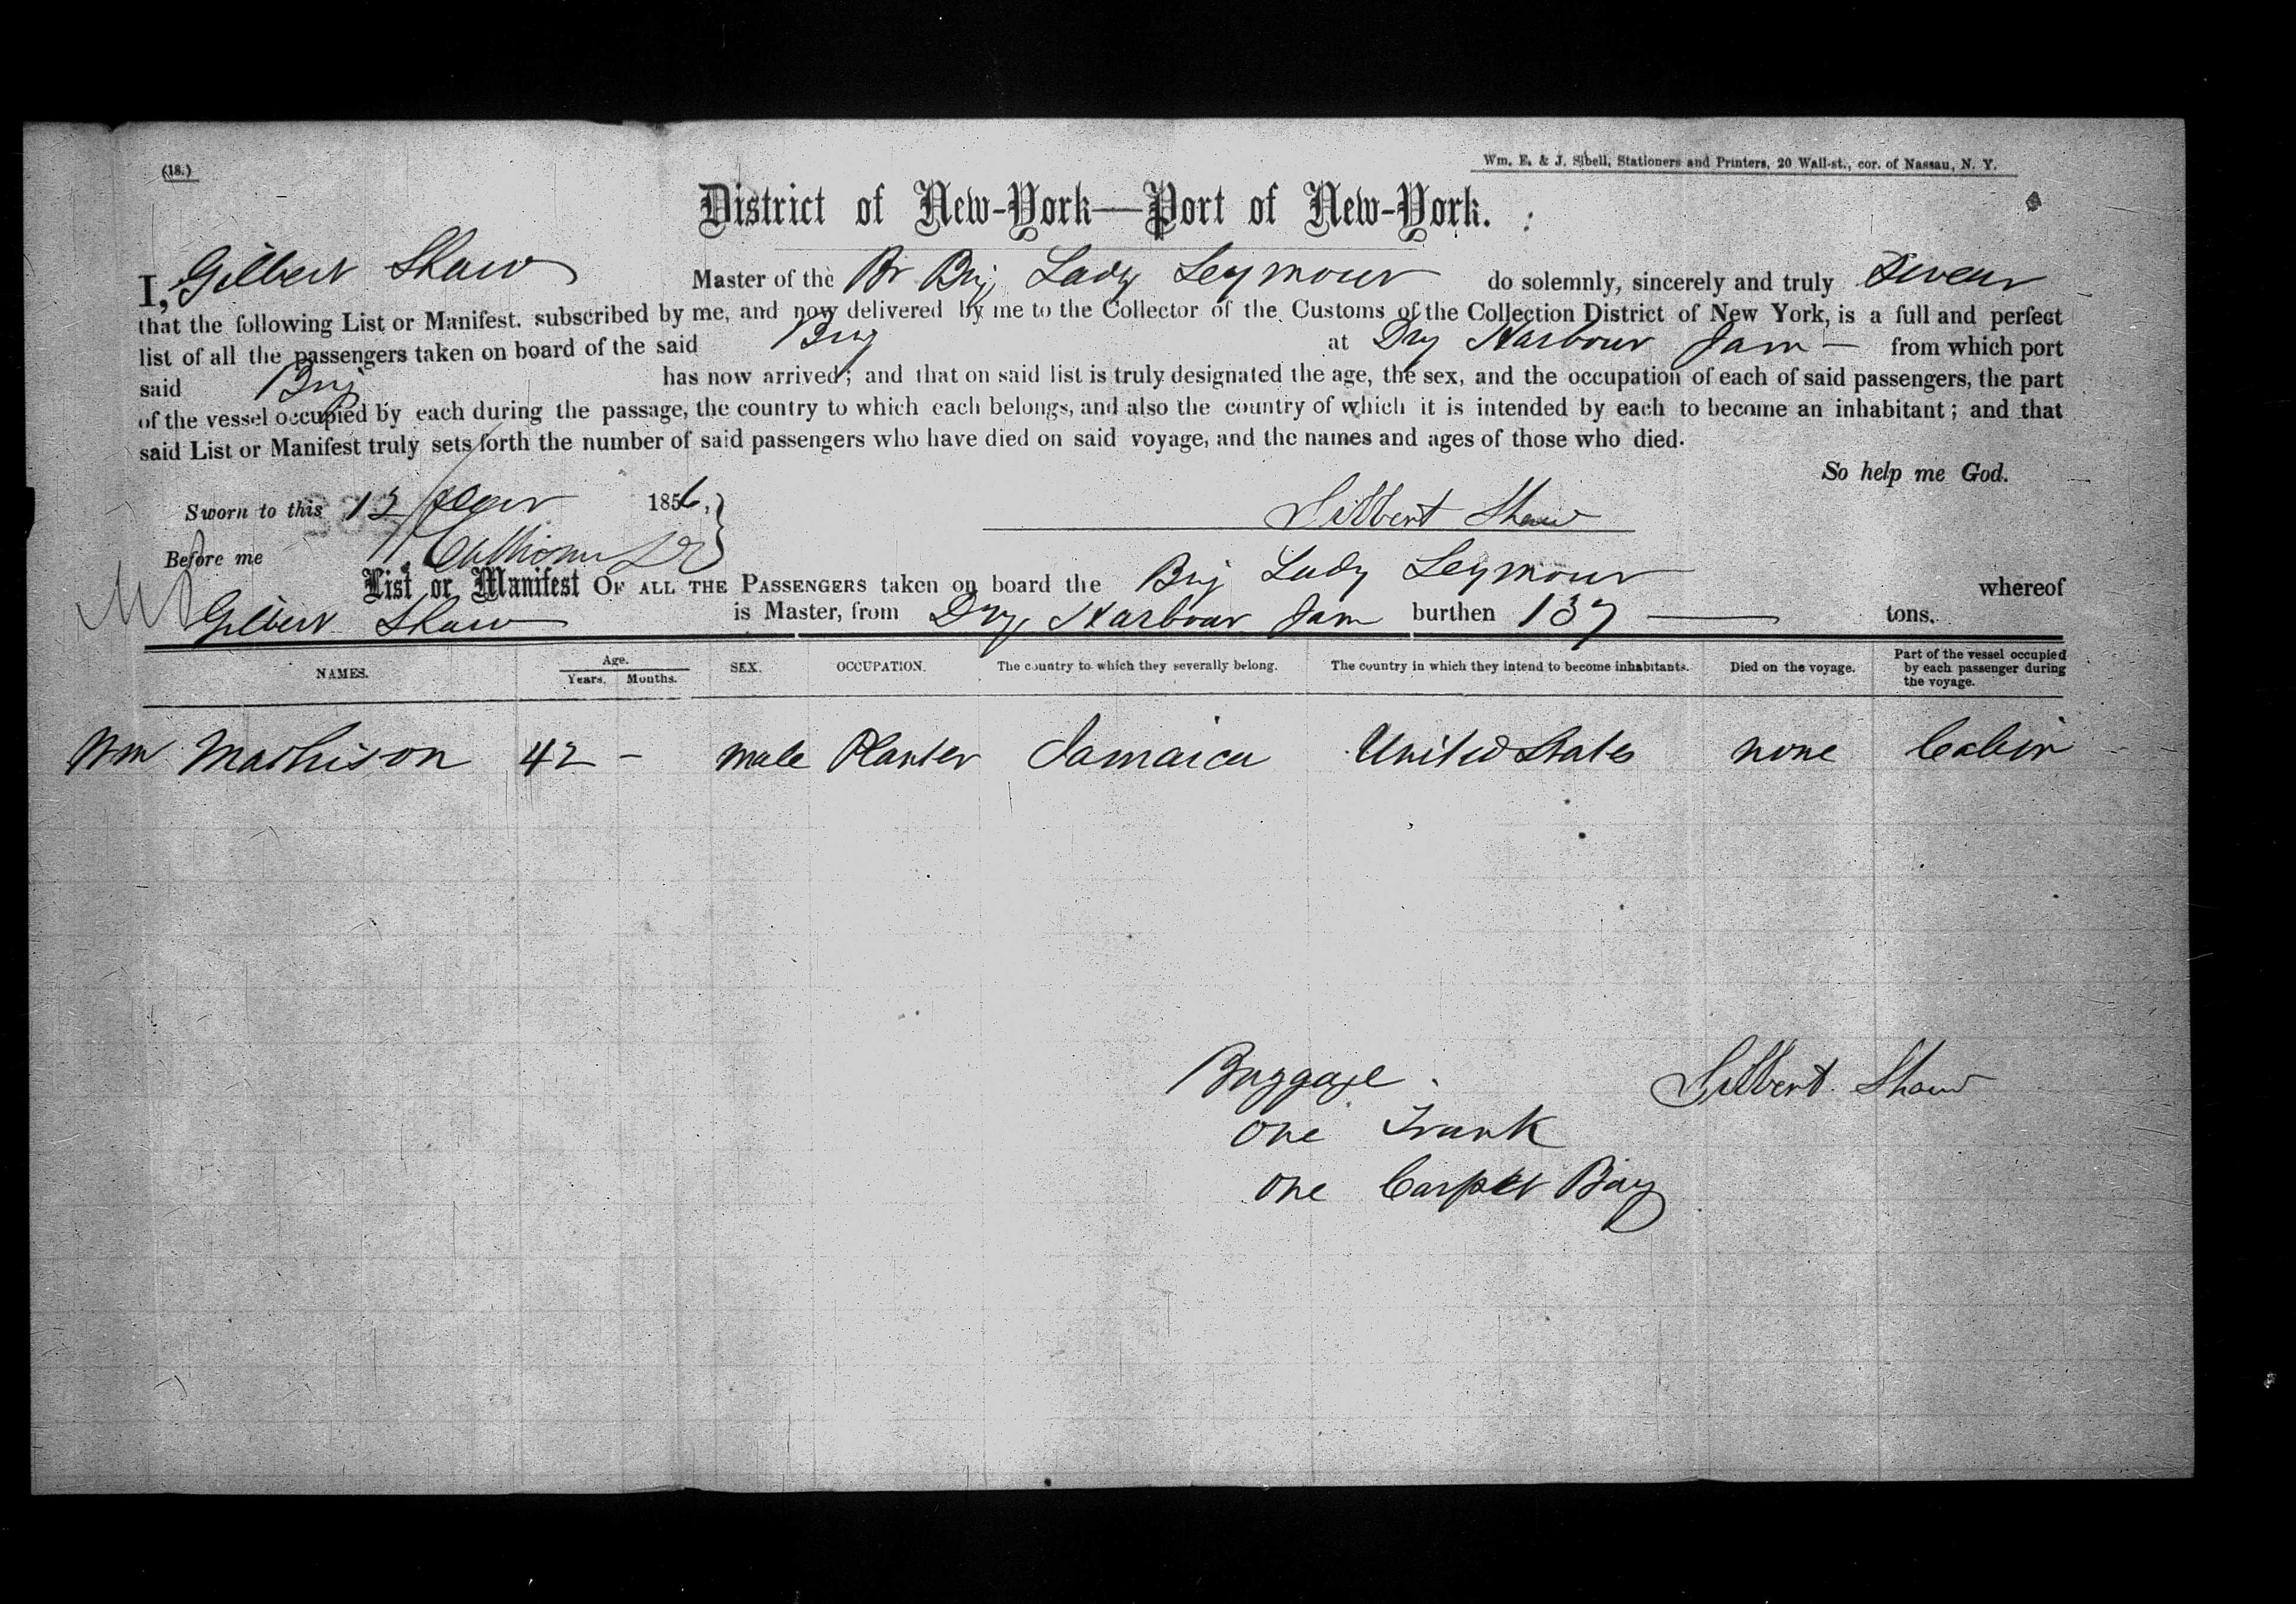 (18.)
Wm. E. & J. Sibell, Stationers and Printers, 20 Wall-st., cor. of Nassau, N. Y.
District of New-York—Port of New-York.
I, Gilbert Shaw Master of the Br Brig Lady Seymour do solemnly, sincerely and truly Swear
that the following List or Manifest. subscribed by me, and now delivered by me to the Collector of the Customs of the Collection District of New York, is a full and perfect
list of all the passengers taken on board of the said Brig at Dry Harbour Jam — from which port
said Brig has now arrived; and that on said list is truly designated the age, the sex, and the occupation of each of said passengers, the part
of the vessel occupied by each during the passage, the country to which each belongs, and also the country of which it is intended by each to become an inhabitant; and that
said List or Manifest truly sets forth the number of said passengers who have died on said voyage, and the names and ages of those who died.
So help me God.
Sworn to this 1856,
Gilbert Shaw
Before me
List or Manifest OF ALL THE PASSENGERS taken on board the Brig Lady Seymour whereof
Gilbert Shaw is Master, from Dry Harbour Jam burthen 137 — tons.
NAMES. Age. Years. Months. SEX. OCCUPATION. The country to which they severally belong. The country in which they intend to become inhabitants. Died on the voyage. Part of the vessel occupied by each passenger during the voyage.
Wm Mathison 42 – male Planter Jamaica United States none Cabin
Baggage. Gilbert Shaw
one Trunk
one Carpet Bag